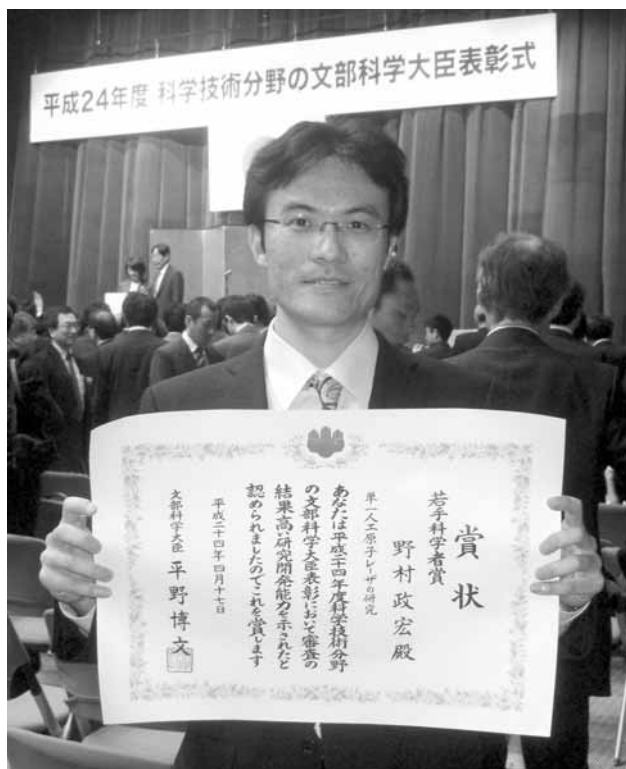 平成24年度 科学技術分野の文部科学大臣表彰式
賞状
若手科学者賞
野村政宏殿
単一人工原子レーザの研究
あなたは平成二十四年度科学技術分野
の文部科学大臣表彰において審査の
結果高い研究開発能力を示されたと
認められましたのでこれを賞します
平成二十四年四月十七日
文部科学大臣 平野博文